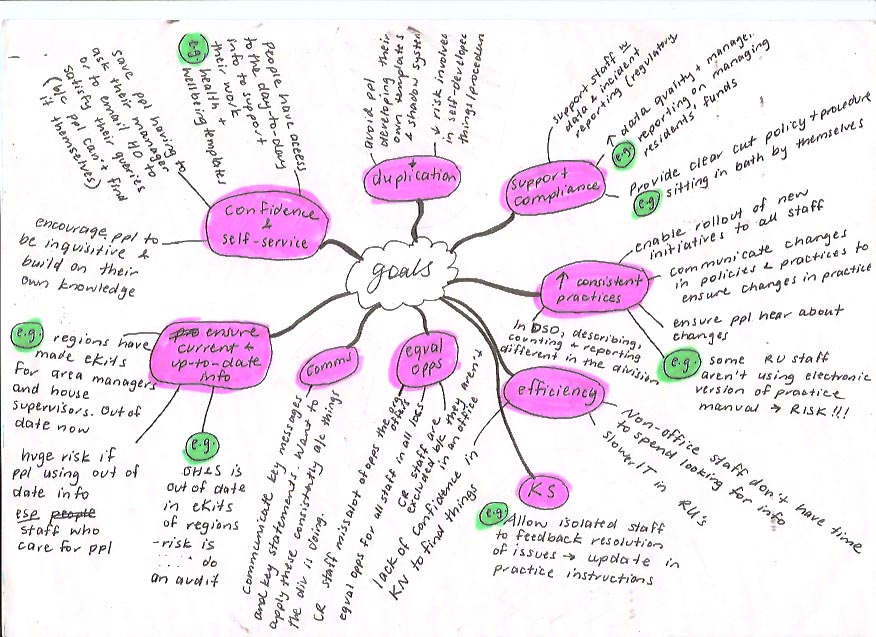 goals
save ppl having to
ask their manager
or to email HO to
satisfy their queries
(b/c ppl can't find
it themselves)
e.g.
people have access
to the day-to-day
info to support
their work
health +
wellbeing templates
confidence
&
self-service
encourage ppl to
be inquisitive &
build on their
own knowledge
avoid ppl
developing their
own templates
& shadow system
↓ risk involved
in self-developed
things/procedures
↓
duplication
support staff w
data & incident
reporting (regulatory
↑ data quality + manage.
e.g. reporting on managing
residents' funds
support
compliance
Provide clear cut policy + procedure
e.g. sitting in bath by themselves
↑ consistent
practices
enable rollout of new
initiatives to all staff
communicate changes
in policies & practices to
ensure changes in practice
ensure ppl hear about
changes
e.g. some RU staff
aren't using electronic
version of practice
manual → RISK!!!
In DSO, describing,
counting & reporting
different in the division
ensure
current &
up-to-date
info
e.g. regions have
made eKits
for area managers
and house
supervisors. Out of
date now
huge risk if
ppl using out of
date info
esp people
staff who
care for ppl
e.g.
OH&S is
out of date
in eKits
of regions
- risk is
do
an audit
comms
Communicate key messages
and key statements. Want to
apply these consistently a/c things
the div is doing.
equal
opps
CR staff miss a lot of opps the
others
equal opps for all staff in all locs
CR staff are
excluded b/c they aren't
in an office
efficiency
lack of confidence in
KN to find things
Non-office staff don't have time
to spend looking for info
slower IT in RU's
KS
e.g. Allow isolated staff
to feedback resolution
of issues → update in
practice instructions